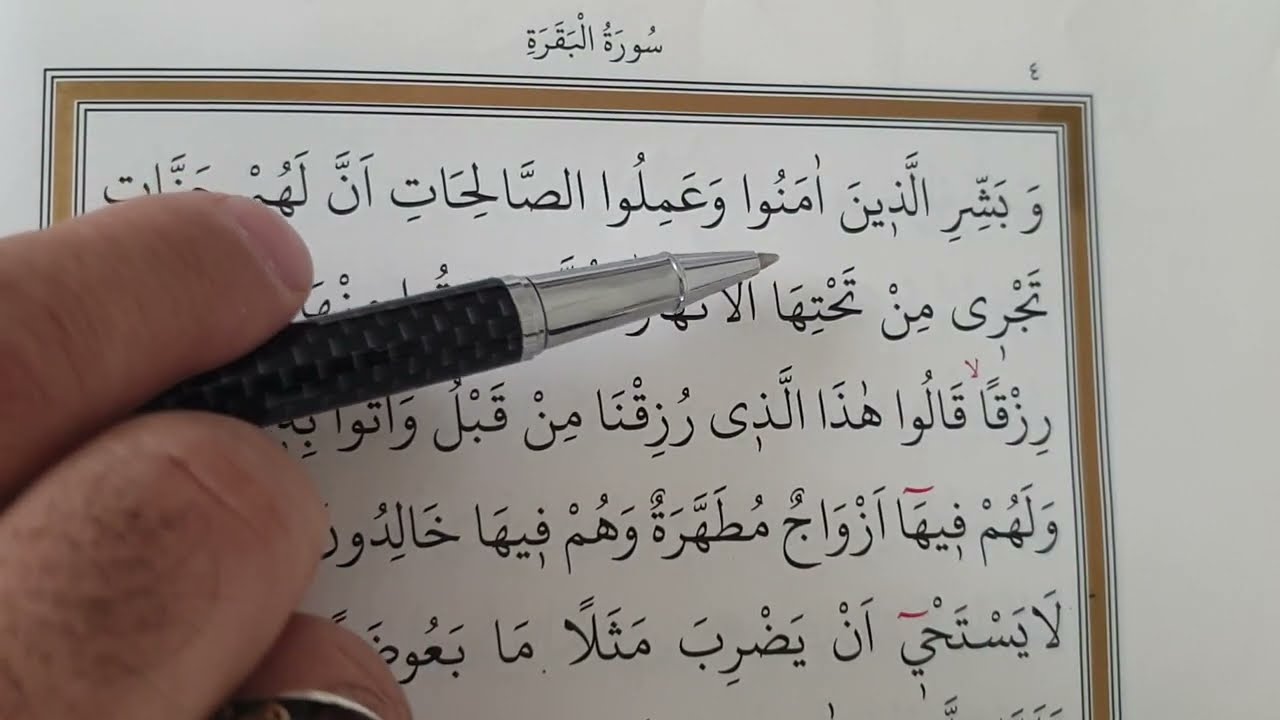 سُورَةُ الْبَقَرَةِ
٤
وَ بَشِّرِ الَّذ۪ينَ اٰمَنُوا وَعَمِلُوا الصَّالِحَاتِ اَنَّ لَهُمْ
تَجْر۪ى مِنْ تَحْتِهَا
رِزْقًاۙ قَالُوا هٰذَا الَّذ۪ى رُزِقْنَا مِنْ قَبْلُ
وَلَهُمْ ف۪يهَٓا اَزْوَاجٌ مُطَهَّرَةٌ وَهُمْ ف۪يهَا خَالِدُونَ
لَا يَسْتَحْي۪ٓ اَنْ يَضْرِبَ مَثَلًا مَا